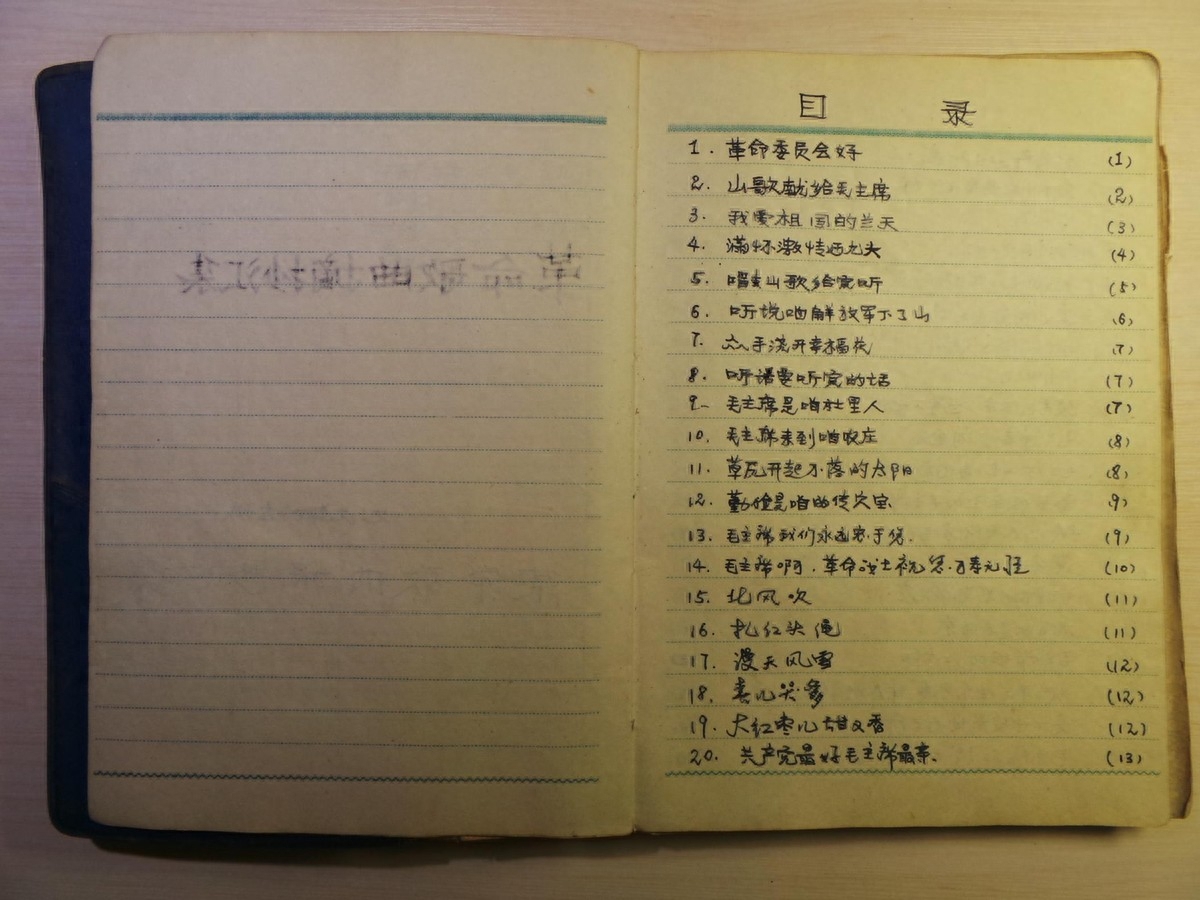 革命歌曲摘抄汇集
目 录
1. 革命委员会好 (1)
2. 山歌献给毛主席 (2)
3. 我爱祖国的兰天 (3)
4. 满怀激情迎九大 (4)
5. 唱支山歌给党听 (5)
6. 听说咱解放军下了山 (6)
7. 众手浇开幸福花 (7)
8. 听话要听党的话 (7)
9. 毛主席是咱社里人 (7)
10. 毛主席来到咱农庄 (8)
11. 草原开起不落的太阳 (8)
12. 勤俭是咱的传家宝 (9)
13. 毛主席我们永远忠于您. (9)
14. 毛主席啊.革命战士祝您万寿无疆 (10)
15. 北风吹 (11)
16. 扎红头绳 (11)
17. 漫天风雪 (12)
18. 喜儿哭爹 (12)
19. 大红枣儿甜又香 (12)
20. 共产党最好毛主席最亲. (13)